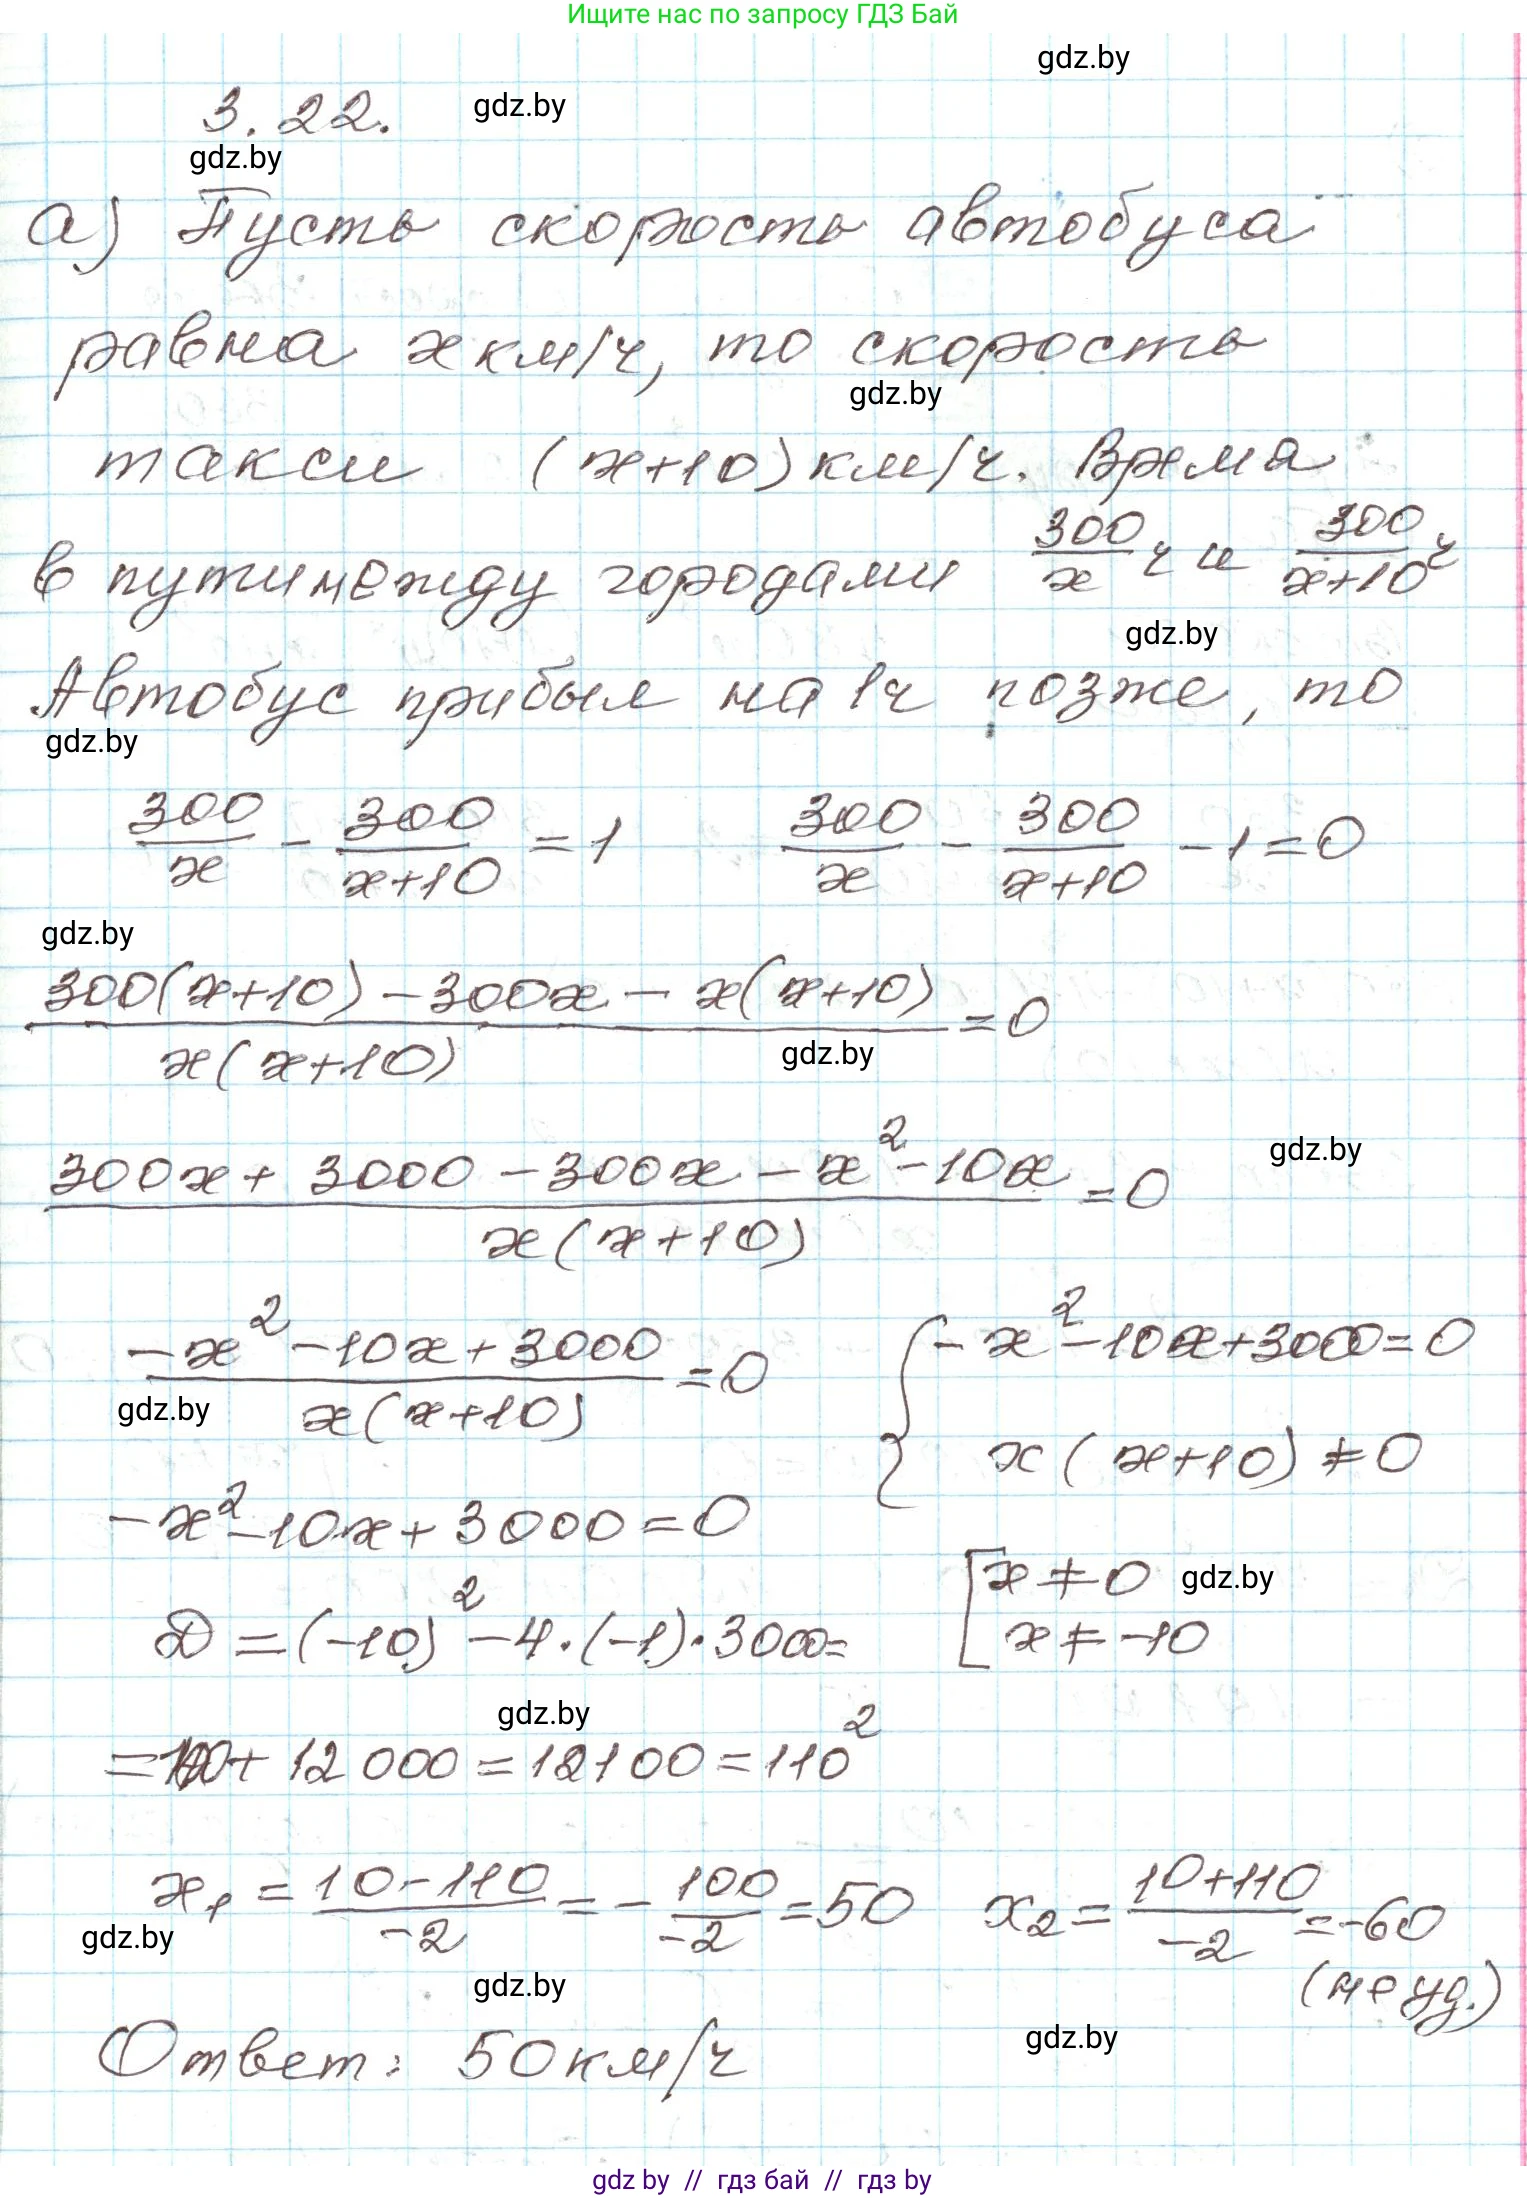 Ищите нас по запросу ГДЗ Бай
gdz.by
3.22. gdz.by
gdz.by
а) Пусть скорость автобуса
равна x км/ч, то скорость
gdz.by
такси (x+10) км/ч. Время
в пути между городами 300/x ч и 300/(x+10) ч
gdz.by
Автобус прибыл на 1ч позже, то
gdz.by
300/x - 300/(x+10) = 1 300/x - 300/(x+10) - 1 = 0
gdz.by
(300(x+10) - 300x - x(x+10))/(x(x+10)) = 0
gdz.by
gdz.by
(300x + 3000 - 300x - x² - 10x)/(x(x+10)) = 0
(-x² - 10x + 3000)/(x(x+10)) = 0 { -x² - 10x + 3000 = 0
gdz.by
x(x+10) ≠ 0
-x² - 10x + 3000 = 0
[ x ≠ 0 gdz.by
x ≠ -10
D = (-10)² - 4·(-1)·3000 =
gdz.by
= 100 + 12 000 = 12100 = 110²
x₁ = (10-110)/(-2) = - 100/(-2) = 50 x₂ = (10+110)/(-2) = -60
gdz.by
(не уд.)
gdz.by
Ответ: 50 км/ч
gdz.by
gdz by // гдз бай // гдз by